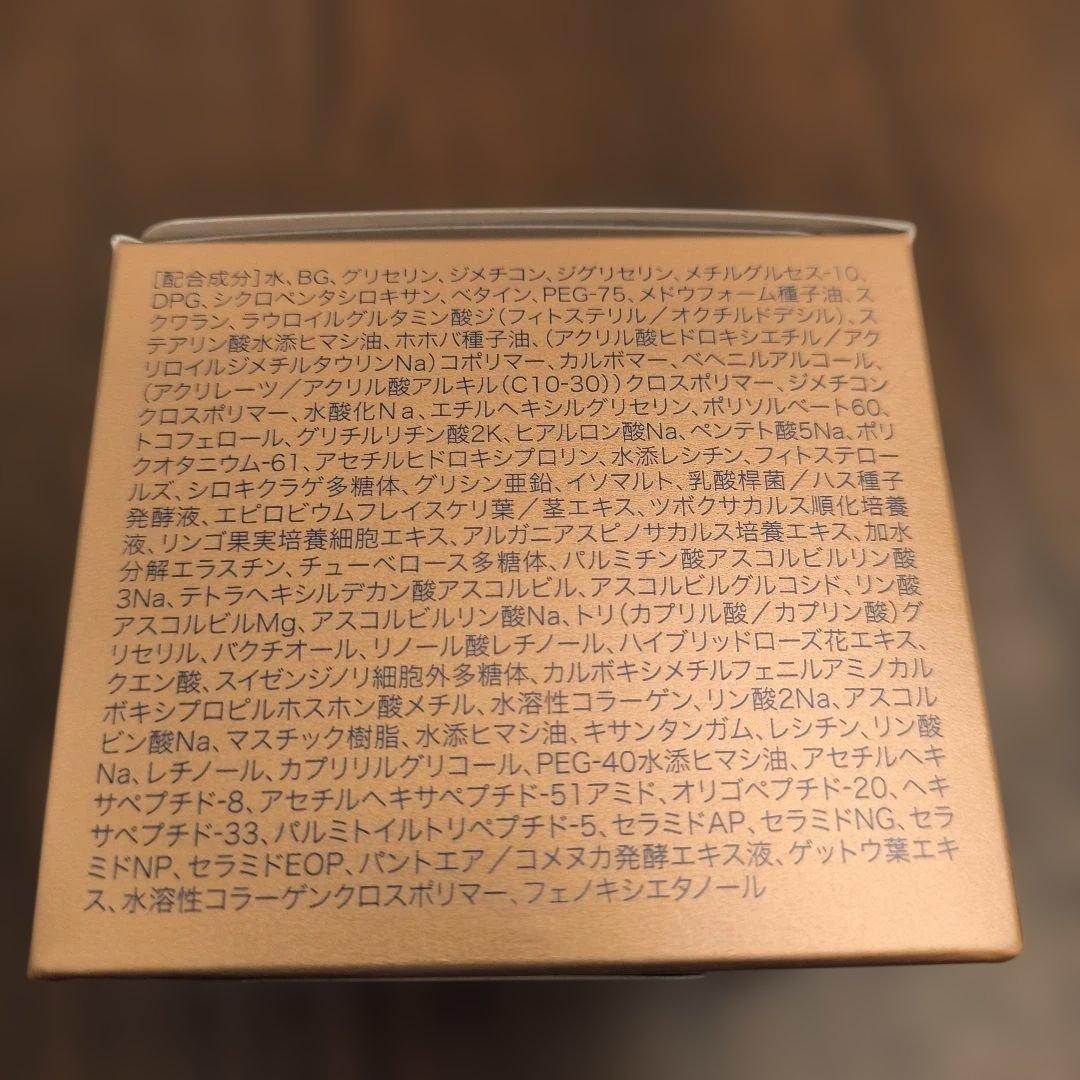 [配合成分]水、BG、グリセリン、ジメチコン、ジグリセリン、メチルグルセス-10、
DPG、シクロペンタシロキサン、ベタイン、PEG-75、メドウフォーム種子油、ス
クワラン、ラウロイルグルタミン酸ジ(フィトステリル／オクチルドデシル)、ス
テアリン酸水添ヒマシ油、ホホバ種子油、(アクリル酸ヒドロキシエチル／アク
リロイルジメチルタウリンNa)コポリマー、カルボマー、ベヘニルアルコール、
(アクリレーツ／アクリル酸アルキル(C10-30))クロスポリマー、ジメチコン
クロスポリマー、水酸化Na、エチルヘキシルグリセリン、ポリソルベート60、
トコフェロール、グリチルリチン酸2K、ヒアルロン酸Na、ペンテト酸5Na、ポリ
クオタニウム-61、アセチルヒドロキシプロリン、水添レシチン、フィトステロー
ルズ、シロキクラゲ多糖体、グリシン亜鉛、イソマルト、乳酸桿菌／ハス種子
発酵液、エピロビウムフレイスケリ葉／茎エキス、ツボクサカルス順化培養
液、リンゴ果実培養細胞エキス、アルガニアスピノサカルス培養エキス、加水
分解エラスチン、チューベロース多糖体、パルミチン酸アスコルビルリン酸
3Na、テトラヘキシルデカン酸アスコルビル、アスコルビルグルコシド、リン酸
アスコルビルMg、アスコルビルリン酸Na、トリ(カプリル酸／カプリン酸)グ
リセリル、バクチオール、リノール酸レチノール、ハイブリッドローズ花エキス、
クエン酸、スイゼンジノリ細胞外多糖体、カルボキシメチルフェニルアミノカル
ボキシプロピルホスホン酸メチル、水溶性コラーゲン、リン酸2Na、アスコル
ビン酸Na、マスチック樹脂、水添ヒマシ油、キサンタンガム、レシチン、リン酸
Na、レチノール、カプリリルグリコール、PEG-40水添ヒマシ油、アセチルヘキ
サペプチド-8、アセチルヘキサペプチド-51アミド、オリゴペプチド-20、ヘキ
サペプチド-33、パルミトイルトリペプチド-5、セラミドAP、セラミドNG、セラ
ミドNP、セラミドEOP、パントエア／コメヌカ発酵エキス液、ゲットウ葉エキ
ス、水溶性コラーゲンクロスポリマー、フェノキシエタノール